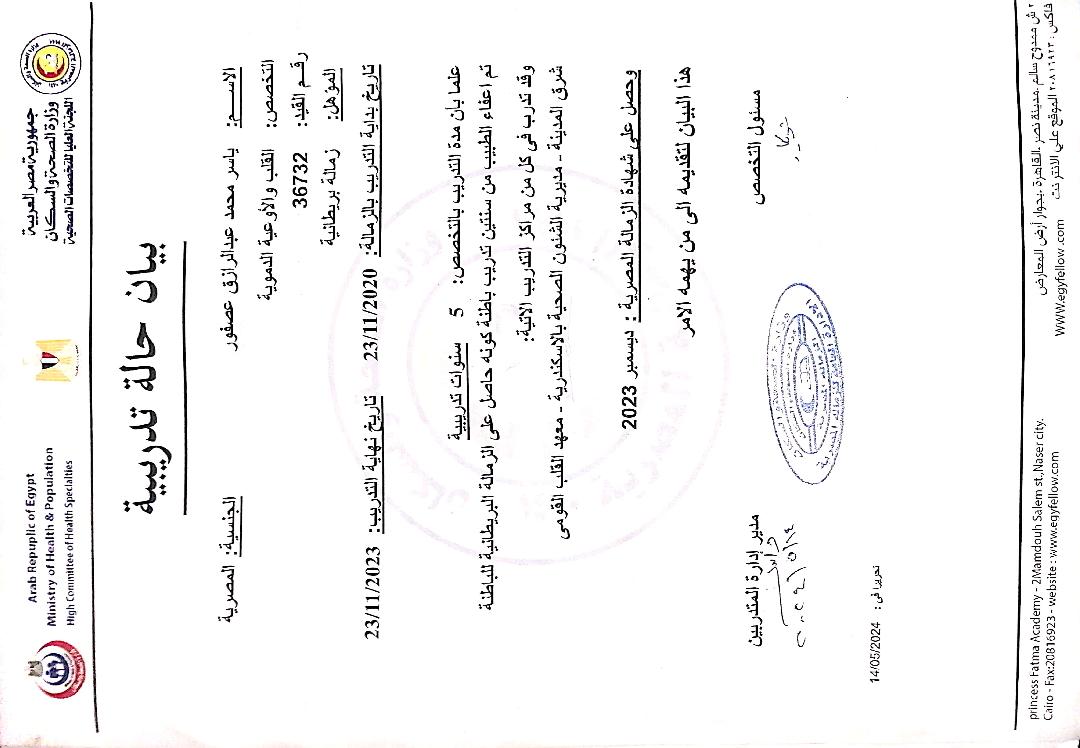 جمهورية مصر العربية
وزارة الصحة والسكان
اللجنة العليا للتخصصات الصحية
Arab Repuplic of Egypt
Ministry of Health & Population
High Committee of Health Specialties
بيان حالة تدريبية
الاســم: ياسر محمد عبدالرازق عصفور الجنسية: المصرية
التخصص: القلب والأوعية الدموية
رقم القيد: 36732
المؤهل: زمالة بريطانية
تاريخ بداية التدريب بالزمالة: 23/11/2020 تاريخ نهاية التدريب: 23/11/2023
علما بان مدة التدريب بالتخصص: 5 سنوات تدريبية
تم اعفاء الطبيب من سنتين تدريب باطنة كونه حاصل على الزمالة البريطانية للباطنة
وقد تدرب فى كل من مراكز التدريب الاتية:
شرق المدينة - مديرية الشئون الصحية بالاسكندرية - معهد القلب القومى
وحصل على شهادة الزمالة المصرية : ديسمبر 2023
هذا البيان لتقديمه الى من يهمه الامر
مسئول التخصص مدير إدارة المتدربين
تحريرا فى : 14/05/2024
٢ ش ممدوح سالم ,مدينة نصر ,القاهرة ,بجوار أرض المعارض
فاكس : ٢٠٨١٦٩٢٣ الموقع على الانتر نت WWW.egyfellow .com
princess Fatma Academy - 2Mamdouh Salem st.,Naser city.
Cairo - Fax:20816923 - website : www.egyfellow.com